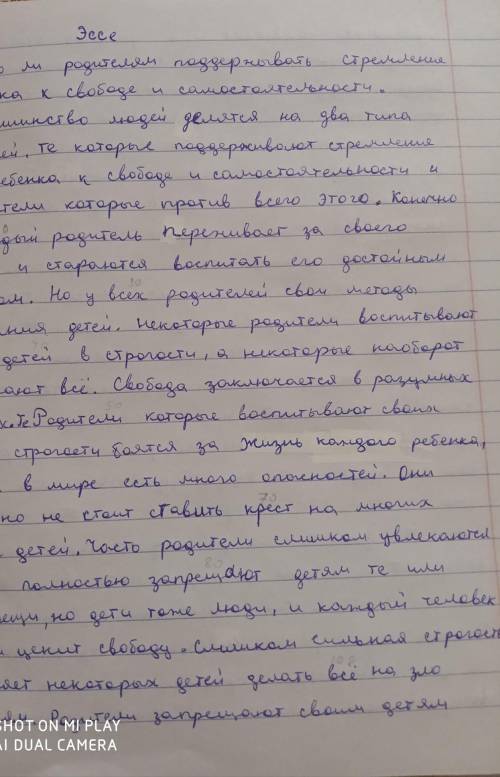 Эссе
о ли родителям поддерживать стремление
ка к свободе и самостоятельности.
шинство людей делятся на два типа
ей, те которые поддерживают стремление
ебенка к свободе и самостоятельности и
тели которые против всего этого. Конечно
дый родитель переживает за своего
и стараются воспитать его достойным
ом. Но у всех родителей свои методы
ния детей. Некоторые родители воспитывают
детей в строгости, а некоторые наоборот
ают всё. Свобода заключается в разумных
х. Те Родители которые воспитывают своих
строгости боятся за жизнь каждого ребенка,
в мире есть много опасностей. Они
но не стоит ставить крест на многих
70
детей. Часто родители слишком увлекаются
полностью запрещают детям те или
80
ещи, но дети тоже люди, и каждый человек
и ценит свободу. Слишком сильная строгость
яет некоторых детей делать всё на зло
ям. Родители запрещают своим детям
SHOT ON MI PLAY
AI DUAL CAMERA